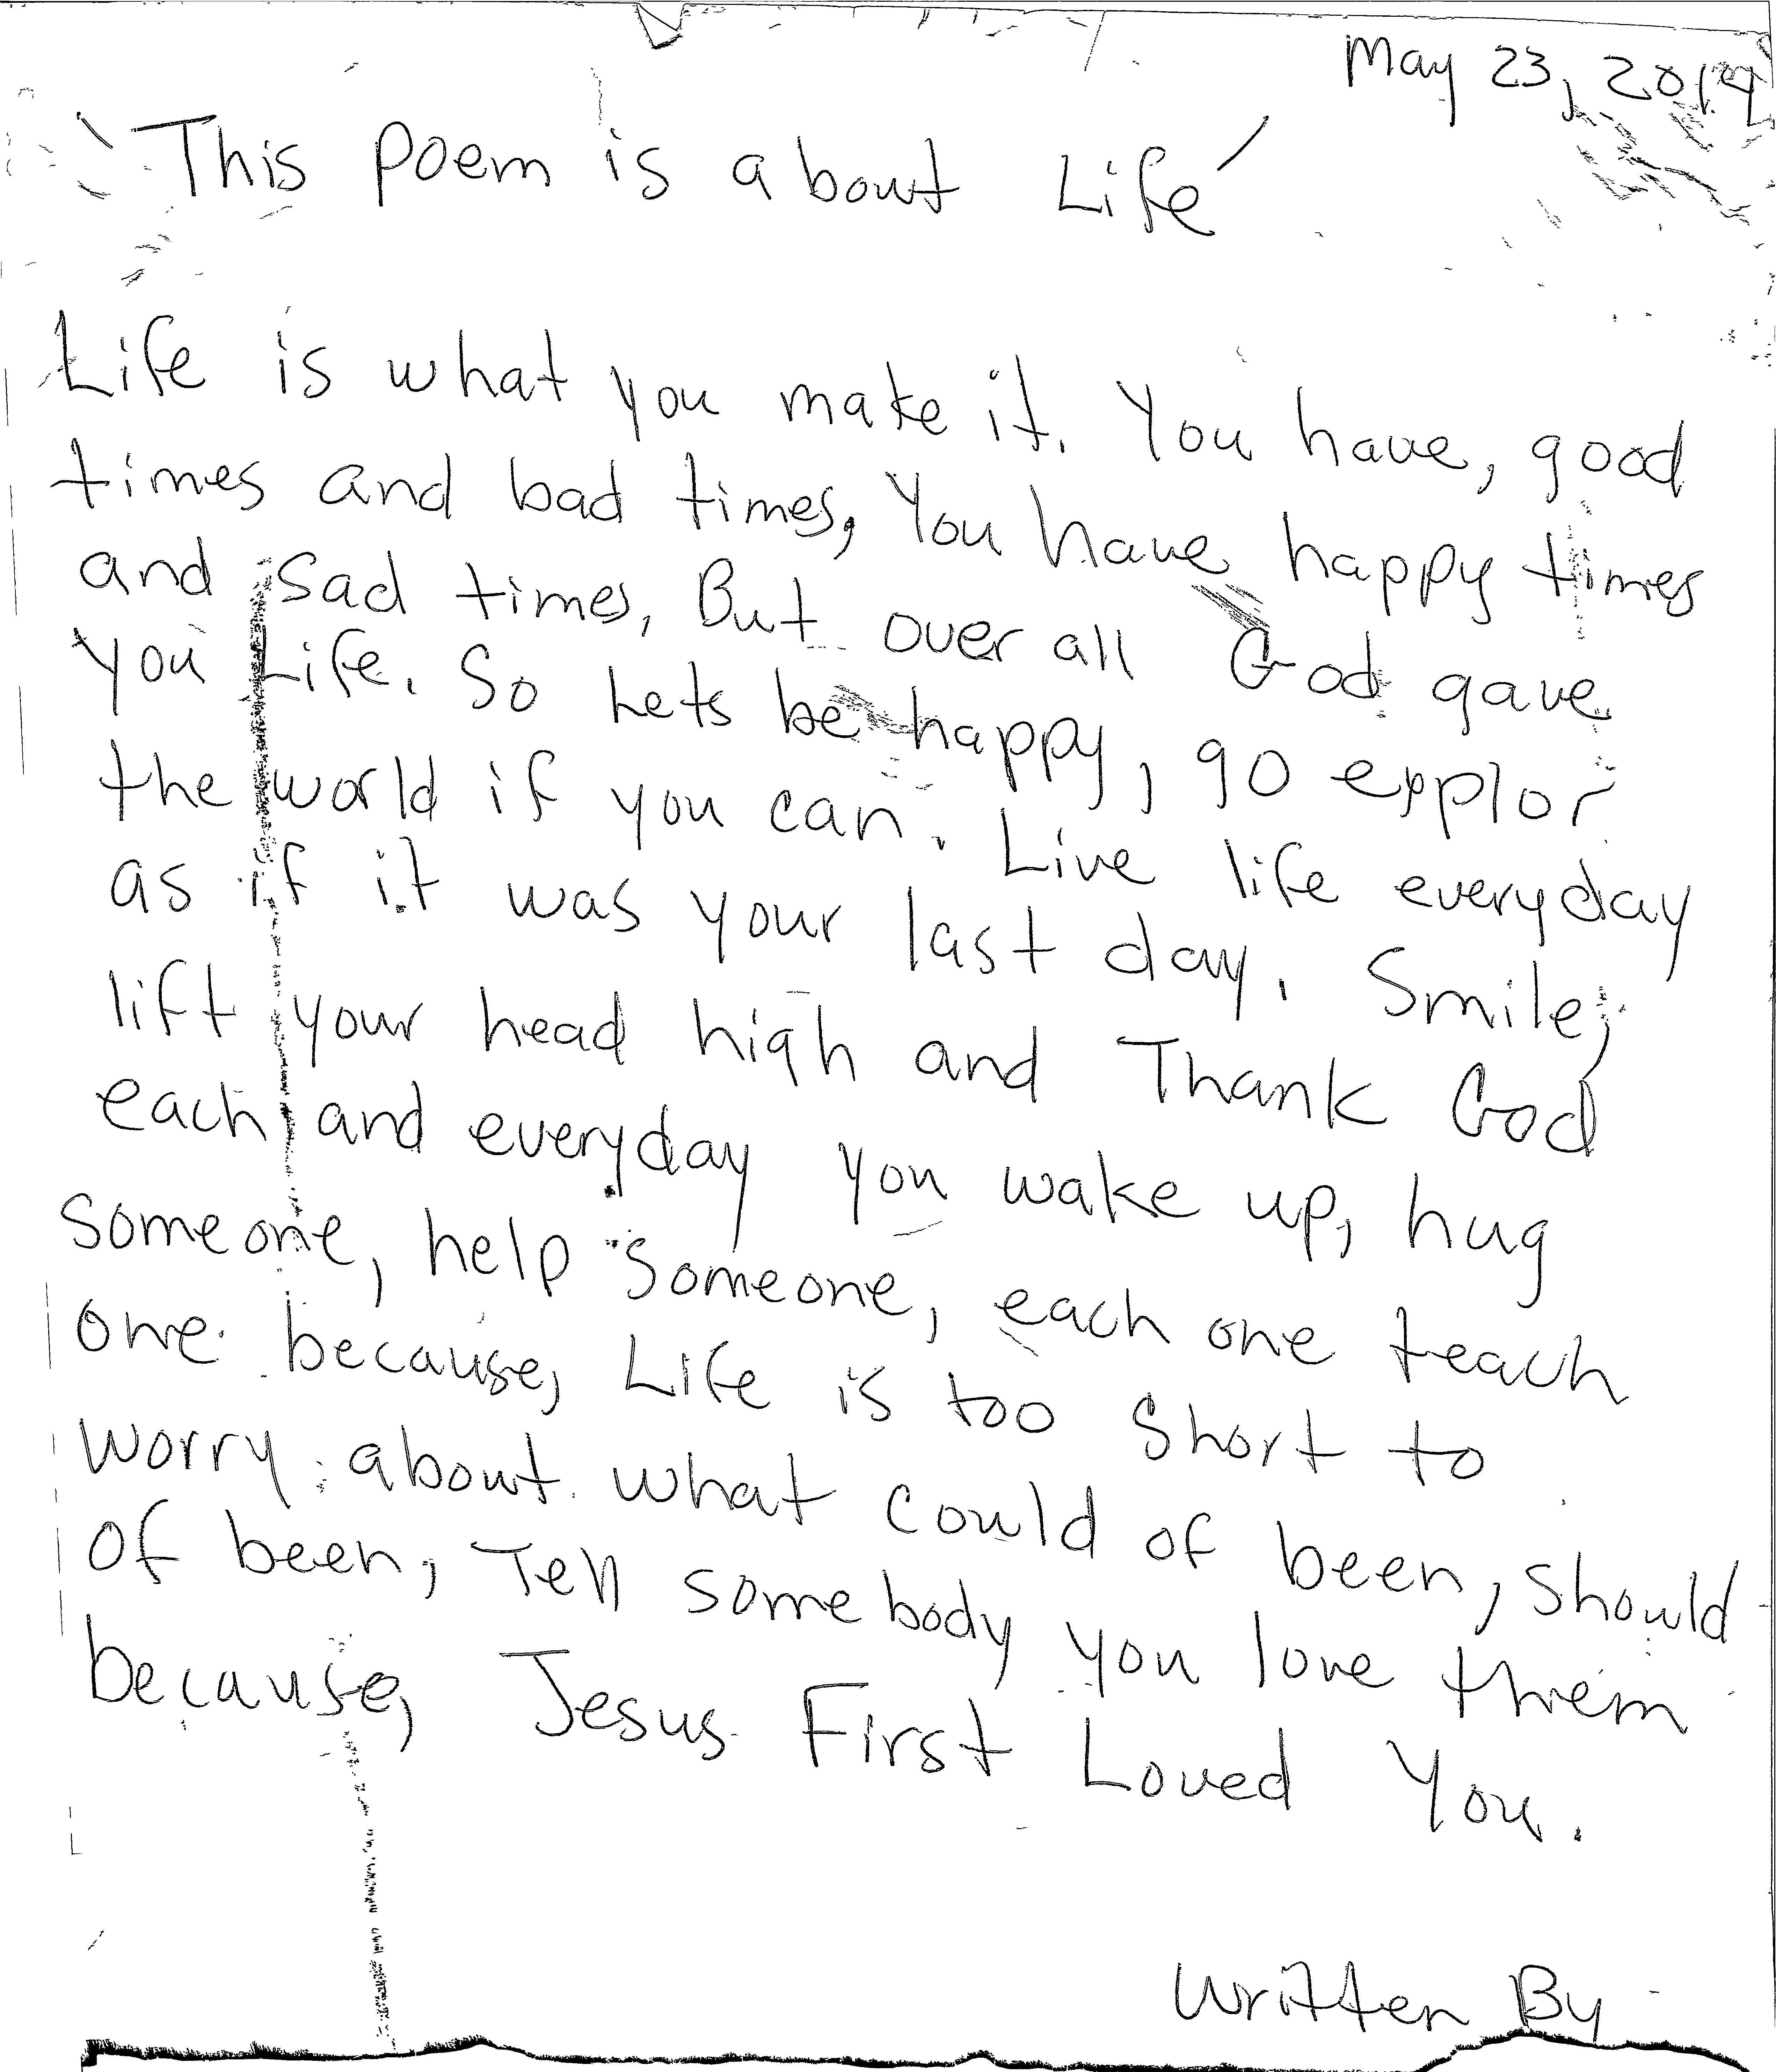 May 23, 2019
`This poem is about Life´
Life is what you make it. You have, good
times and bad times, You have happy times
and Sad times, But over all God gave
you Life. So Lets be happy, go explor
the world if you can. Live life everyday
as if it was your last day. Smile,
lift your head high and Thank God
each and everyday you wake up, hug
someone, help Someone, each one teach
one because, Life is too Short to
worry about what could of been, should
of been, Tell somebody you love them
because, Jesus First Loved You.
written By